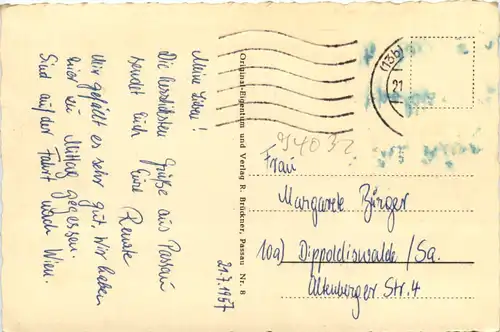 Meine Lieben!
Die herzlichsten Grüße aus Passau
sendet Euch
Eure
Renate
Mir gefällt es sehr gut. Wir haben
hier zu Mittag gegessen.
Sind auf der Fahrt nach Wien.
21.7.1957
Original-Eigentum und Verlag R. Brückner, Passau Nr. 8
(13b)
21
94032
Frau
Margarete Bürger
10a) Dippoldiswalde/Sa.
Altenberger Str. 4